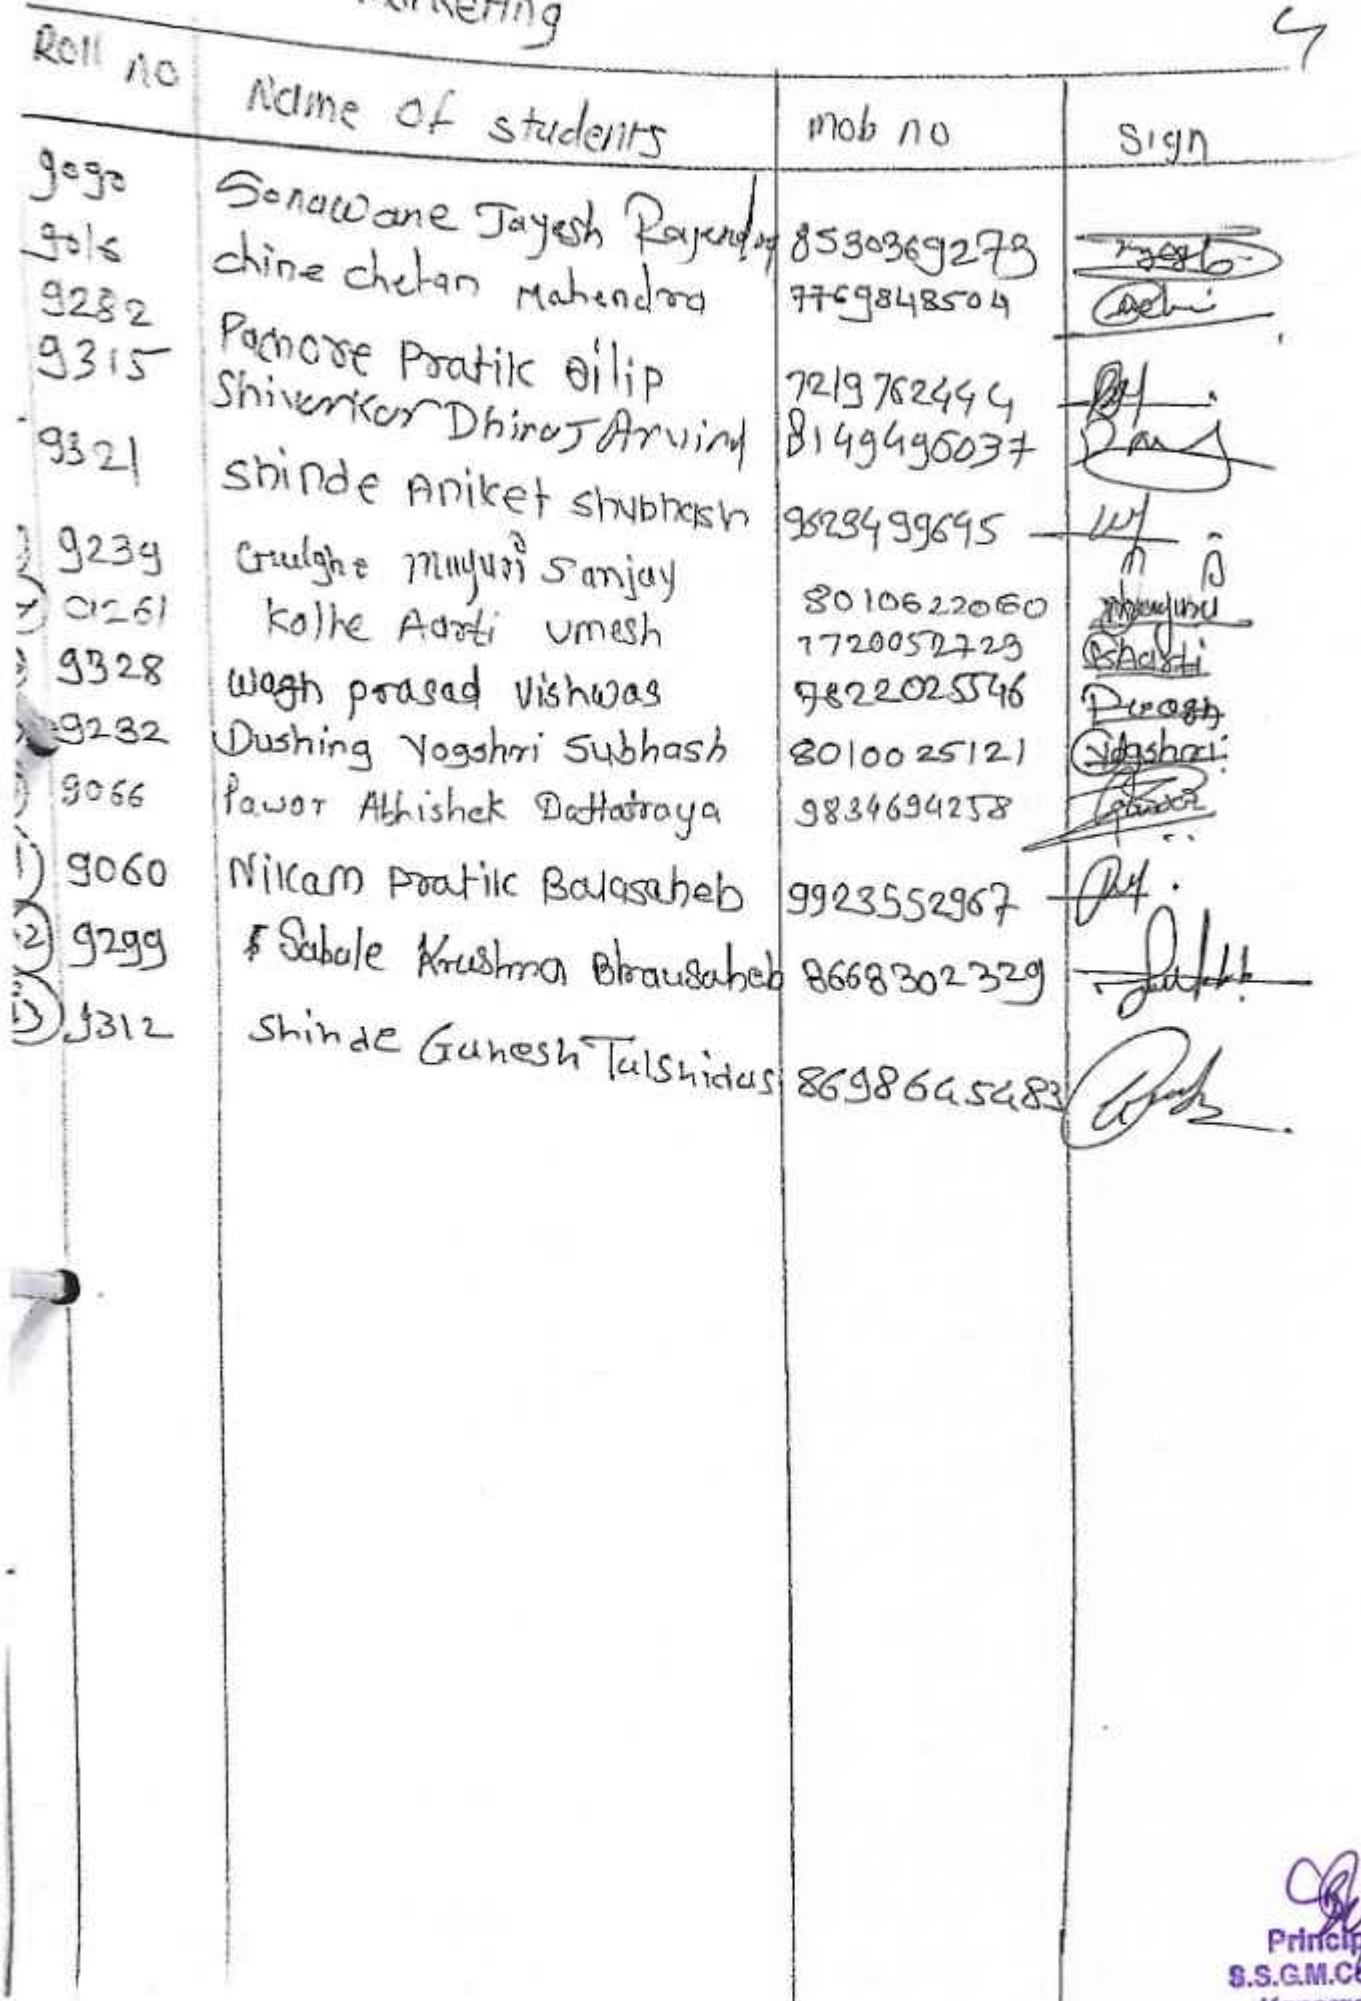 Roll no Name of students mob no Sign
9090 Sonawane Jayesh Rajendra 8530369273
9016 chine chetan Mahendra 7769848504
9282 Pacnore Pratik Dilip 7219762444
9315 Shiverkar Dhiraj Arvind 8149496037
9321 Shinde Aniket Shubhash 9623499645
9239 Gulghe Mayuri Sanjay 8010622060
9261 Kolhe Aarti Umesh 7720052723
9328 Wagh prasad Vishwas 7822025546
9232 Dushing Yogshri Subhash 8010025121 Yogshri
9066 Pawar Abhishek Dattatraya 9834694258
1) 9060 Nikam Pratik Balasaheb 9923552967
2) 9299 Sabale Krushna Bhausaheb 8668302329
3) 9312 Shinde Ganesh Tulshidas 8698645483
S.S.G.M.